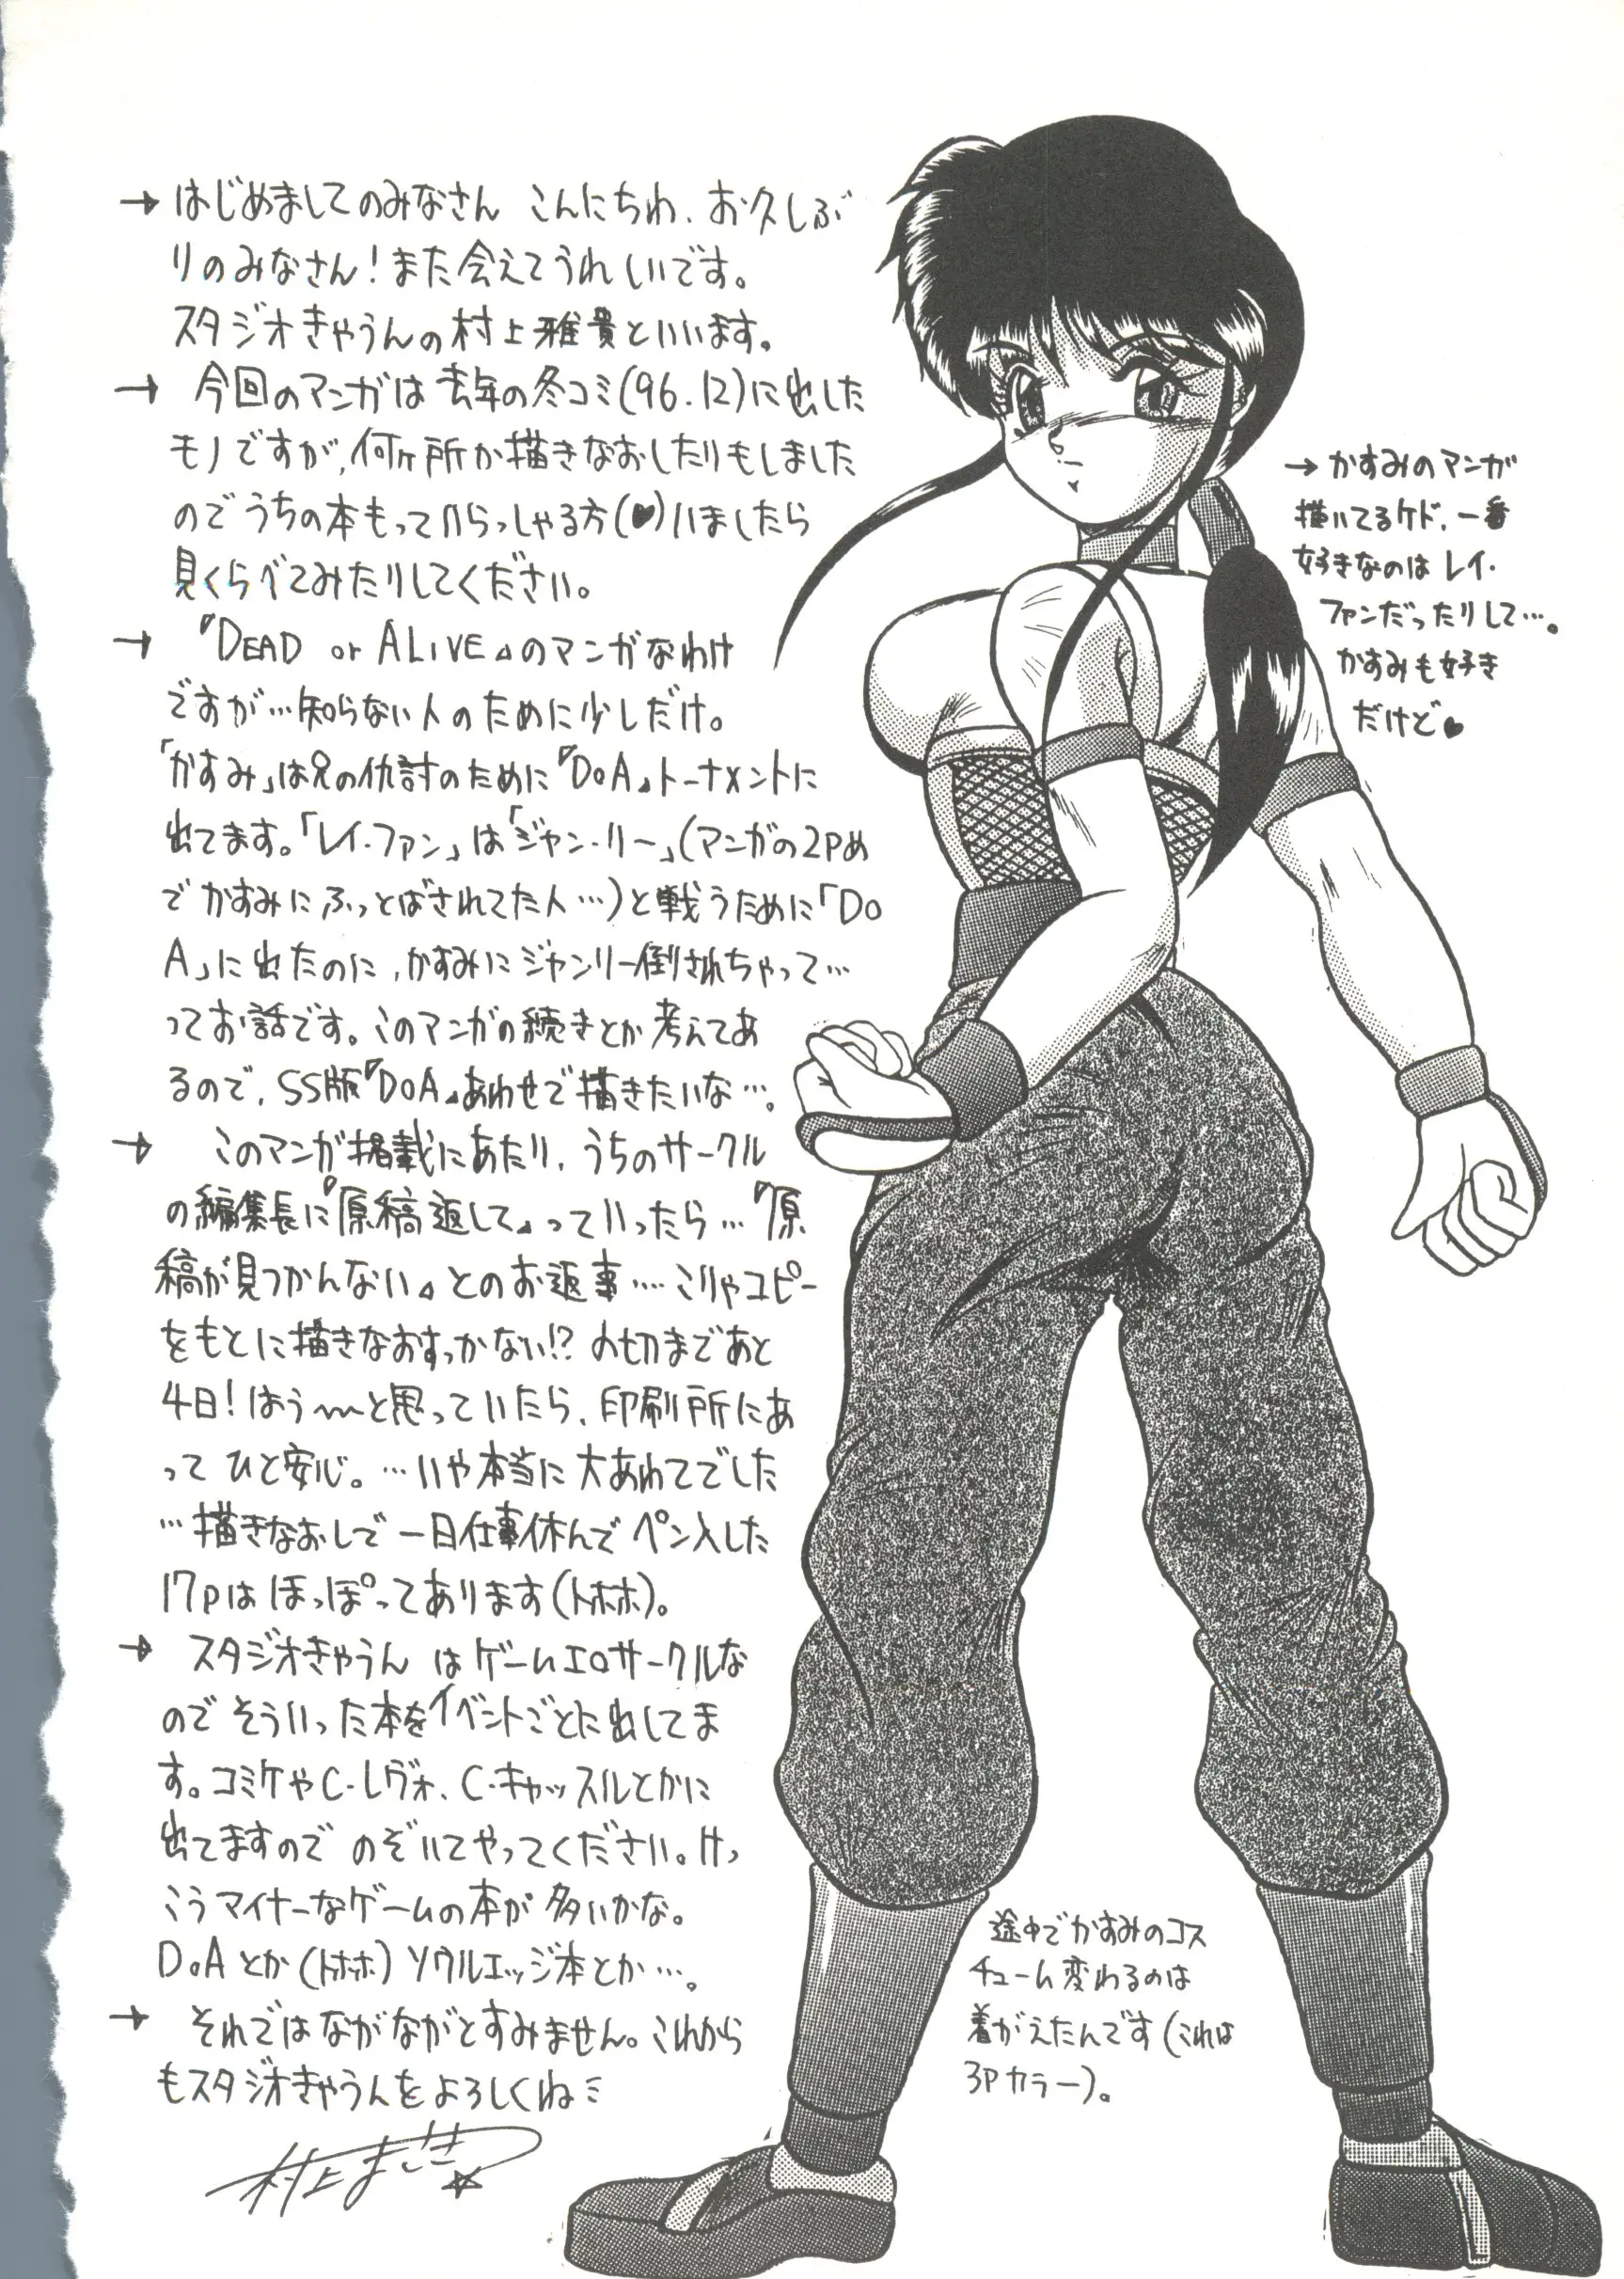 →はじめましてのみなさん こんにちわ、お久しぶ
りのみなさん!また会えてうれしいです。
スタジオきゃうんの村上雅貴といいます。
→ 今回のマンガは去年の冬コミ(96.12)に出した
モノですが、何ヶ所か描きなおしたりもしました
のでうちの本もっていらっしゃる方(♥)いましたら
見くらべてみたりしてください。
→ 『DEAD or ALIVE』のマンガなわけ
ですが…知らない人のために少しだけ。
「かすみ」は兄の仇討のために『DoA』トーナメントに
出てます。「レイ・ファン」は「ジャン・リー」(マンガの2Pめ
でかすみにふっとばされてた人…)と戦うために「Do
A」に出たのに、かすみにジャンリー倒されちゃって…
ってお話です。このマンガの続きとか考えてあ
るので、SS版『DOA』あわせで描きたいな…。
→ このマンガ掲載にあたり、うちのサークル
の編集長に『原稿返して』っていったら…『原
稿が見つかんない』とのお返事……こりゃコピー
をもとに描きなおすっかない!?〆切まであと
4日!はう〜〜と思っていたら、印刷所にあ
って ひと安心。…いや本当に大あわてでした
…描きなおしで一日仕事休んでペン入した
17pは ほっぽってあります(トホホ)。
→ スタジオきゃうん はゲームエロサークルな
のでそういった本をイベントごとに出してま
す。コミケやC・レヴォ、C・キャッスルとかに
出てますので のぞいてやってください。けっ
こうマイナーなゲームの本が多いかな。
DoAとか(トホホ)ソウルエッジ本とか…。
→ それではながながとすみません。これから
もスタジオきゃうんをよろしくねミ
村上まさき☆
→かすみのマンガ
描いてるケド、一番
好きなのはレイ・
ファンだったりして…。
かすみも好き
だけど♥
途中でかすみのコス
チューム変わるのは
着がえたんです(これは
3Pカラー)。